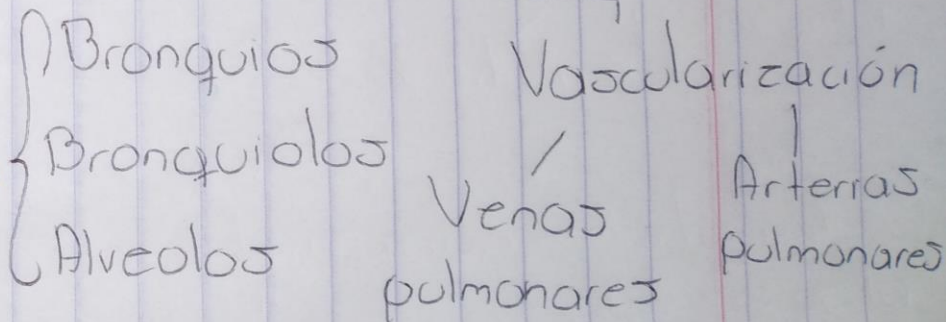 Bronquios
Bronquiolos
Alveolos
Vascularización
Venas
pulmonares
Arterias
pulmonares